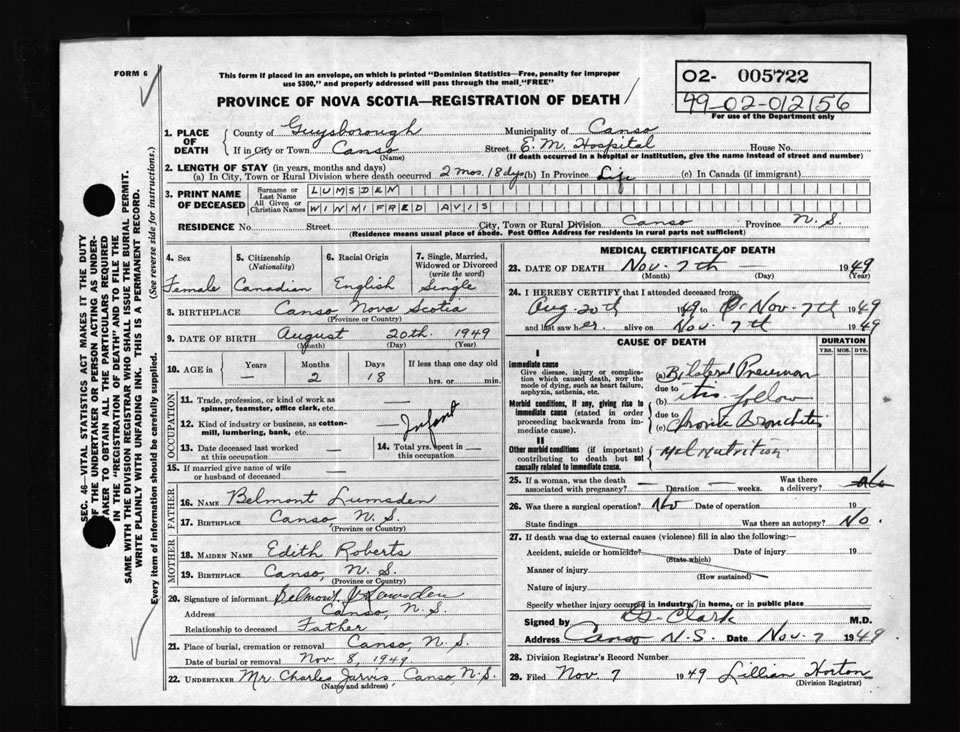 FORM 6
This form if placed in an envelope, on which is printed "Dominion Statistics—Free, penalty for improper
use $300," and properly addressed will pass through the mail "FREE"
PROVINCE OF NOVA SCOTIA—REGISTRATION OF DEATH
02- 005722
49-02-012156
For use of the Department only
SEC. 46—VITAL STATISTICS ACT MAKES IT THE DUTY
OF THE UNDERTAKER OR PERSON ACTING AS UNDER-
TAKER TO OBTAIN ALL THE PARTICULARS REQUIRED
IN THE "REGISTRATION OF DEATH" AND TO FILE THE
SAME WITH THE DIVISION REGISTRAR WHO SHALL ISSUE THE BURIAL PERMIT.
WRITE PLAINLY WITH UNFADING INK. THIS IS A PERMANENT RECORD.
Every item of information should be carefully supplied. (See reverse side for instructions.)
1. PLACE OF DEATH County of Guysborough Municipality of Canso
If in City or Town Canso Street E. M. Hospital House No.
(Name) (If death occurred in a hospital or institution, give the name instead of street and number)
2. LENGTH OF STAY (in years, months and days)
(a) In City, Town or Rural Division where death occurred 2 mos. 18 dys (b) In Province Life (c) In Canada (if immigrant)
3. PRINT NAME OF DECEASED Surname or Last Name LUMSDEN
All Given or Christian Names WINNIFRED AVIS
RESIDENCE No. Street City, Town or Rural Division Canso Province N. S.
(Residence means usual place of abode. Post Office Address for residents in rural parts not sufficient)
4. Sex 5. Citizenship (Nationality) 6. Racial Origin 7. Single, Married, Widowed or Divorced (write the word)
Female Canadian English Single
8. BIRTHPLACE Canso Nova Scotia
(Province or Country)
9. DATE OF BIRTH August 20th 1949
(Month) (Day) (Year)
10. AGE in Years Months Days If less than one day old
— 2 18 hrs. or min.
OCCUPATION
11. Trade, profession, or kind of work as
spinner, teamster, office clerk, etc. —
12. Kind of industry or business, as cotton-
mill, lumbering, bank, etc. — Infant
13. Date deceased last worked at this occupation — 14. Total yrs. spent in this occupation —
15. If married give name of wife
or husband of deceased —
FATHER
16. NAME Belmont Lumsden
17. BIRTHPLACE Canso, N. S.
(Province or Country)
MOTHER
18. MAIDEN NAME Edith Roberts
19. BIRTHPLACE Canso, N. S.
(Province or Country)
20. Signature of informant Belmont Lumsden
Address Canso, N. S.
Relationship to deceased Father
21. Place of burial, cremation or removal Canso, N. S.
Date of burial or removal Nov 8, 1949
22. UNDERTAKER Mr. Charles Jarvis, Canso, N. S.
(Name and address)
MEDICAL CERTIFICATE OF DEATH
23. DATE OF DEATH Nov. 7th — 1949
(Month) (Day) (Year)
24. I HEREBY CERTIFY that I attended deceased from:
Aug. 20th 1949 to Nov. 7th 1949
and last saw her alive on Nov. 7th 1949
CAUSE OF DEATH DURATION
YRS. MOS. DYS.
I
Immediate cause
Give disease, injury or complica-
tion which caused death, not the
mode of dying, such as heart failure,
asphyxia, asthenia, etc.
(a) Bilateral Pneumon
due to
(b) itis follow
Morbid conditions, if any, giving rise to
immediate cause (stated in order
proceeding backwards from im-
mediate cause).
due to
(c) Chronic Bronchitis
II
Other morbid conditions (if important)
contributing to death but not
causally related to immediate cause.
Mal Nutrition
25. If a woman, was the death Was there
associated with pregnancy? — Duration — weeks. a delivery?
26. Was there a surgical operation? No Date of operation 19
State findings Was there an autopsy? No.
27. If death was due to external causes (violence) fill in also the following:—
Accident, suicide or homicide? Date of injury 19
(State which)
Manner of injury
(How sustained)
Nature of injury
Specify whether injury occurred in industry, in home, or in public place
Signed by Clark M.D.
Address Canso N.S. Date Nov. 7 1949
28. Division Registrar's Record Number
29. Filed Nov. 7 1949 Lillian Horton
(Division Registrar)